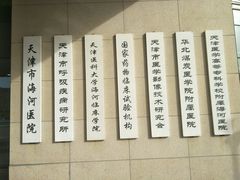 天津市海河医院
天津市呼吸疾病研究所
天津医科大学海河临床学院
国家药物临床试验机构
天津市医学影像技术研究会
华北煤炭医学院附属医院
天津医学高等专科学校附属海河医院